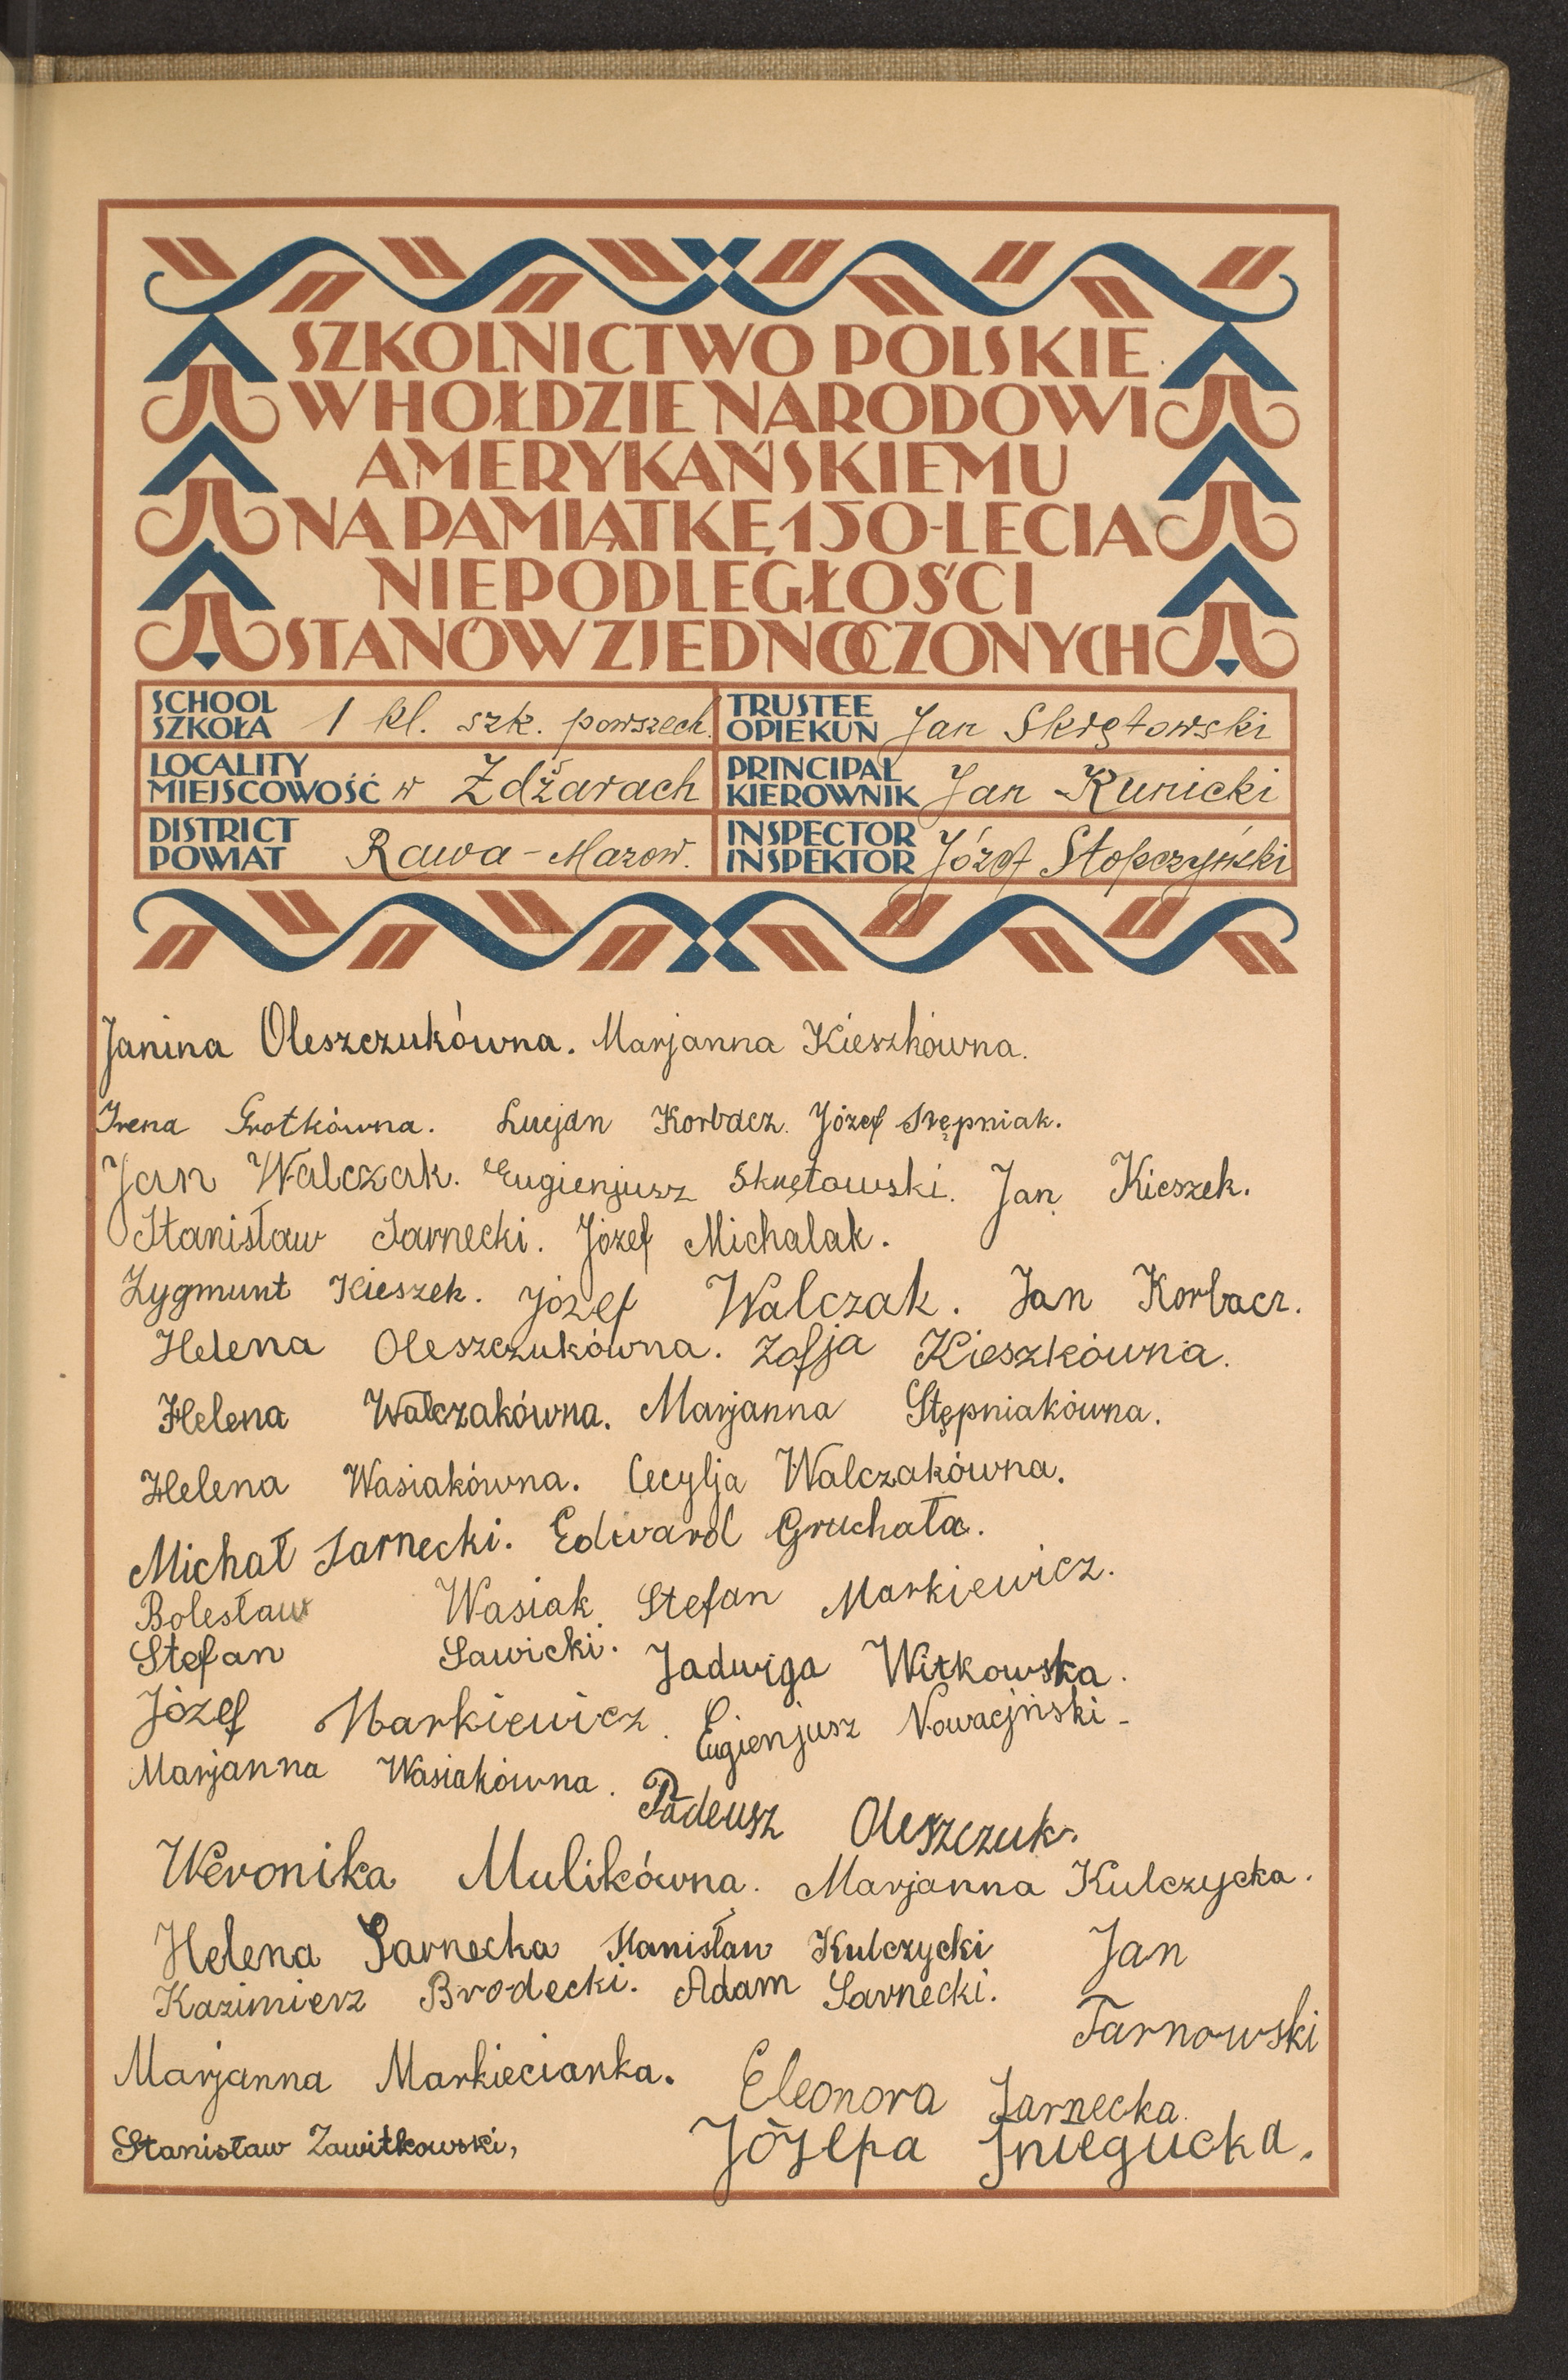 SZKOLNICTWO POLSKIE
W HOŁDZIE NARODOWI
AMERYKAŃSKIEMU
NA PAMIĄTKĘ 150-LECIA
NIEPODLEGŁOŚCI
STANÓW ZJEDNOCZONYCH
SCHOOL
SZKOŁA 1 kl. szk. powszech.
TRUSTEE
OPIEKUN Jan Skrętowski
LOCALITY
MIEJSCOWOŚĆ w Żdżarach
PRINCIPAL
KIEROWNIK Jan Kunicki
DISTRICT
POWIAT Rawa-Mazow.
INSPECTOR
INSPEKTOR Józef Stopczyński
Janina Oleszczukówna. Marjanna Kieszkówna.
Irena Grotkówna. Lucjan Korbacz. Józef Stępniak.
Jan Walczak. Eugienjusz Skrętowski. Jan Kieszek.
Stanisław Sarnecki. Józef Michalak.
Zygmunt Kieszek. Józef Walczak. Jan Korbacz.
Helena Oleszczukówna. Zofja Kieszkówna.
Helena Walczakówna. Marjanna Stępniakówna.
Helena Wasiakówna. Cecylja Walczakówna.
Michał Sarnecki. Edward Gruchała.
Bolesław Wasiak Stefan Markiewicz.
Stefan Sawicki. Jadwiga Witkowska.
Józef Markiewicz. Eugienjusz Nowacjński-
Marjanna Wasiakówna. Tadeusz Oleszczuk.
Weronika Mulikówna. Marjanna Kulczycka.
Helena Sarnecka Stanisław Kulczycki Jan
Kazimierz Brodecki. Adam Sarnecki. Tarnowski
Marjanna Markiecianka. Eleonora Sarnecka.
Stanisław Zawitkowski, Józepa Śniegucka.